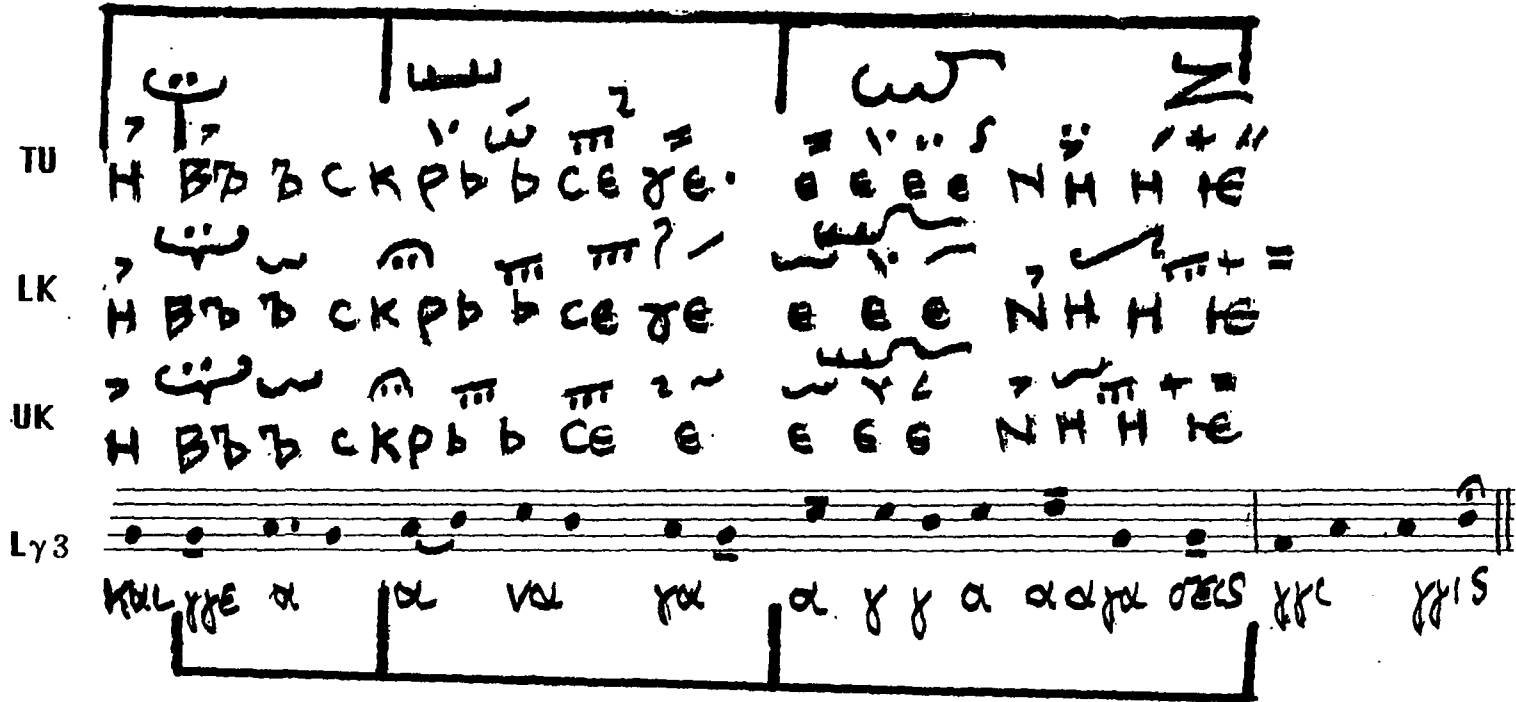 TU Н ВЪ Ъ С К Р Ь Ь СЕ ɣЕ. Е Е Е Е N Н Н Ѥ
LK Н ВЪ Ъ С К Р Ь Ь СЕ ɣЕ Е Е Е N Н Н Ѥ
UK Н ВЪ Ъ С К Р Ь Ь СЕ Е Е Е Е N Н Н Ѥ
Lγ3
και γγε α α να γα α γ γ α α α γα σεις γγι γγις